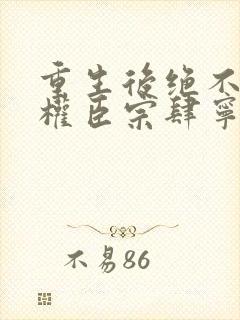 重生後绝不
權臣宗肆寧
不易86